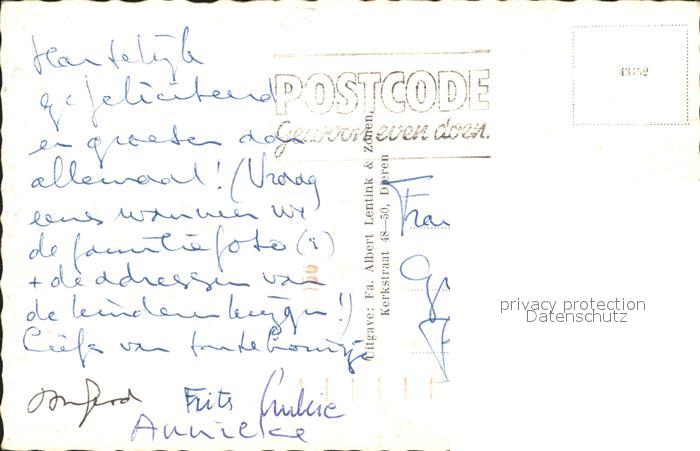 Hartelijk
gefeliciteerd
en groeten
allemaal! (Vraag
eens wanneer we
de familiefoto (s)
+ de adressen van
de kinderen krijgen!)
Liefs van tante
Frits
Annieke
POSTCODE
Gewoon even doen.
Uitgave: Fa. Albert Lentink & Zonen,
Kerkstraat 48—50, Dieren
43452
Frau
privacy protection
Datenschutz